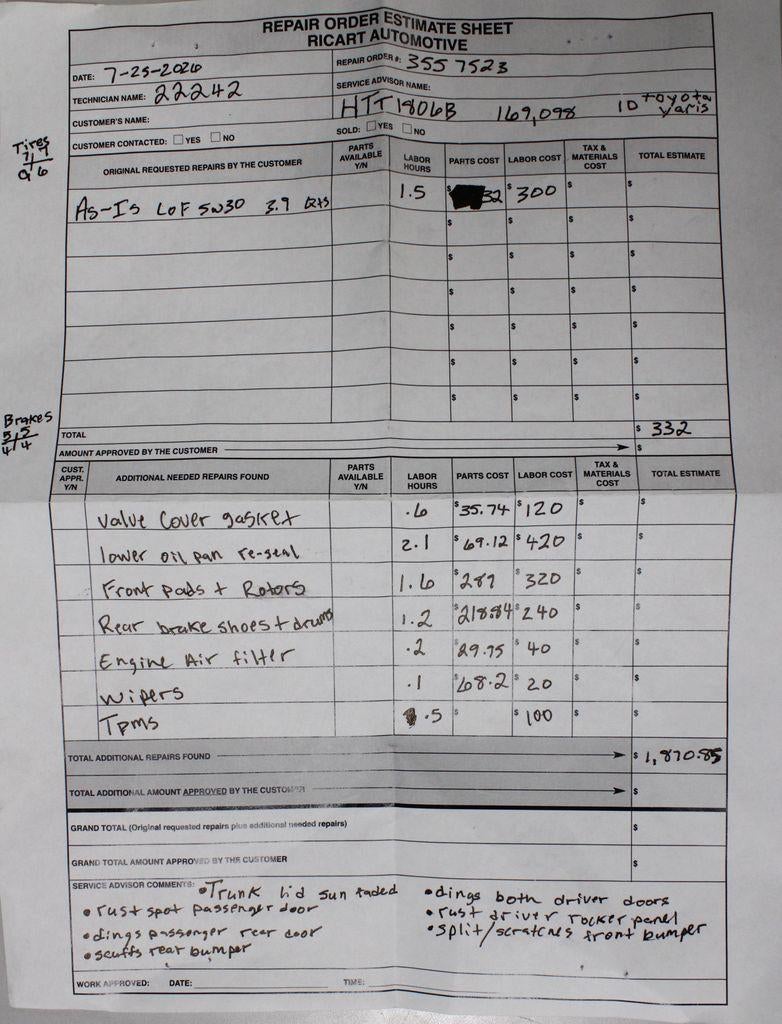 REPAIR ORDER ESTIMATE SHEET
RICART AUTOMOTIVE
DATE: 7-25-2026
REPAIR ORDER #: 355 7523
TECHNICIAN NAME: 22242
SERVICE ADVISOR NAME:
CUSTOMER'S NAME:
HTT1806B 169,098 10 toyota yaris
CUSTOMER CONTACTED: YES NO
SOLD: YES NO
Tires
7/7
6
ORIGINAL REQUESTED REPAIRS BY THE CUSTOMER PARTS AVAILABLE Y/N LABOR HOURS PARTS COST LABOR COST TAX & MATERIALS COST TOTAL ESTIMATE
As-Is LOF 5w30 3.9 Qts 1.5 $ 32 $ 300 $ $
$ $ $ $
$ $ $ $
$ $ $ $
$ $ $ $
$ $ $ $
$ $ $ $
Brakes
5/5
4/4
TOTAL $ 332
AMOUNT APPROVED BY THE CUSTOMER $
CUST. APPR. Y/N ADDITIONAL NEEDED REPAIRS FOUND PARTS AVAILABLE Y/N LABOR HOURS PARTS COST LABOR COST TAX & MATERIALS COST TOTAL ESTIMATE
Valve Cover gasket .6 $ 35.74 $ 120 $ $
lower oil pan re-seal 2.1 $ 69.12 $ 420 $ $
Front pads + Rotors 1.6 $ 289 $ 320 $ $
Rear brake shoes + drums 1.2 $ 218.84 $ 240 $ $
Engine Air filter .2 $ 29.95 $ 40 $ $
wipers .1 $ 68.2 $ 20 $ $
Tpms .5 $ $ 100 $ $
TOTAL ADDITIONAL REPAIRS FOUND $ 1,870.85
TOTAL ADDITIONAL AMOUNT APPROVED BY THE CUSTOMER $
GRAND TOTAL (Original requested repairs plus additional needed repairs) $
GRAND TOTAL AMOUNT APPROVED BY THE CUSTOMER $
SERVICE ADVISOR COMMENTS: • Trunk lid sun faded
• rust spot passenger door
• dings passenger rear door
• scuffs rear bumper
• dings both driver doors
• rust driver rocker panel
• split/scratches front bumper
WORK APPROVED: DATE: TIME: